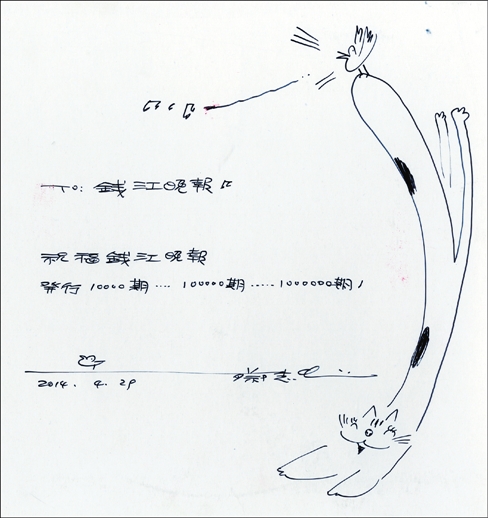 To: 錢江晚報
祝福錢江晚報
發行10000期....100000期.....1000000期!
2014. 4. 29 蔡志忠